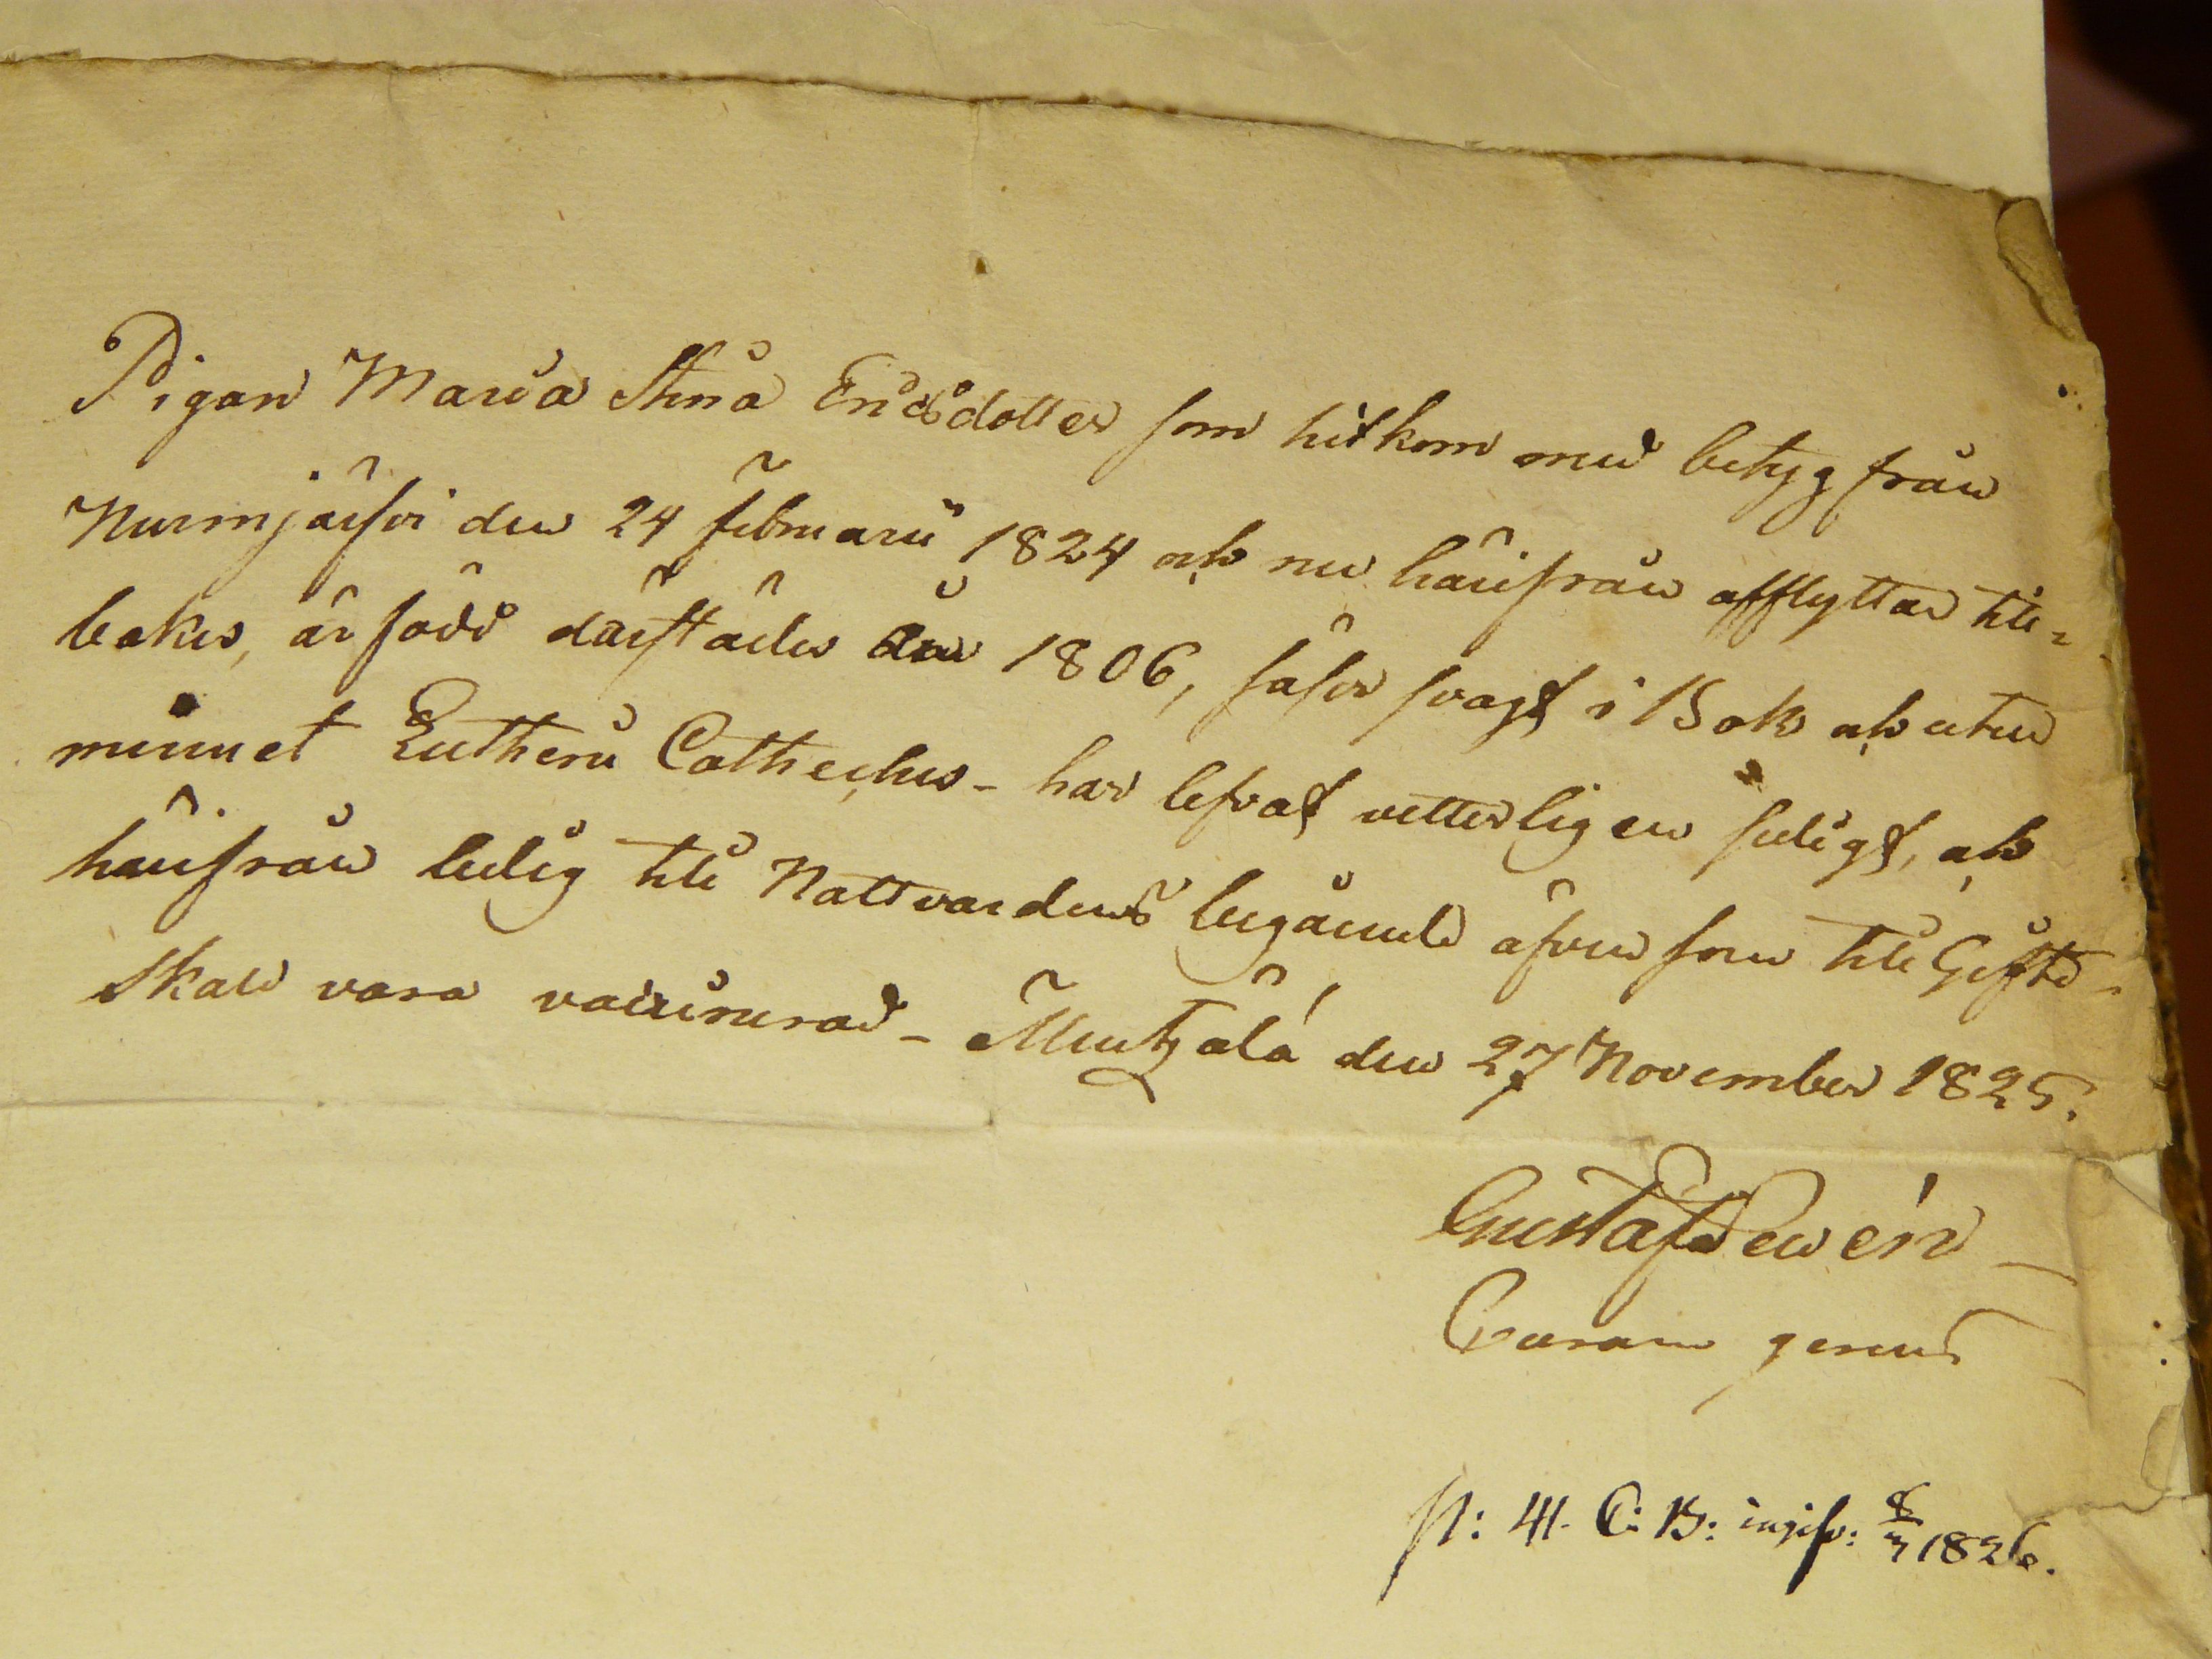 Pigan Maria Stina Ericsdotter som hitkom med betyg från
Nurmjärfvi den 24 februarii 1824 och nu härifrån afflyttar till-
bakes, är född därstädes år 1806, läser svagt i Bok och utur
minnet Lutheri Catheches - har lefvat vetterligen sedigt, och
härifrån ledig till Nattvardens begående äfven som till Gifte-
skall vara vaccinerad - Mentzälä den 27 November 1825.
Gustaf Lewén
Curam gerens
p: 41. C: B: ingifv: 1826.